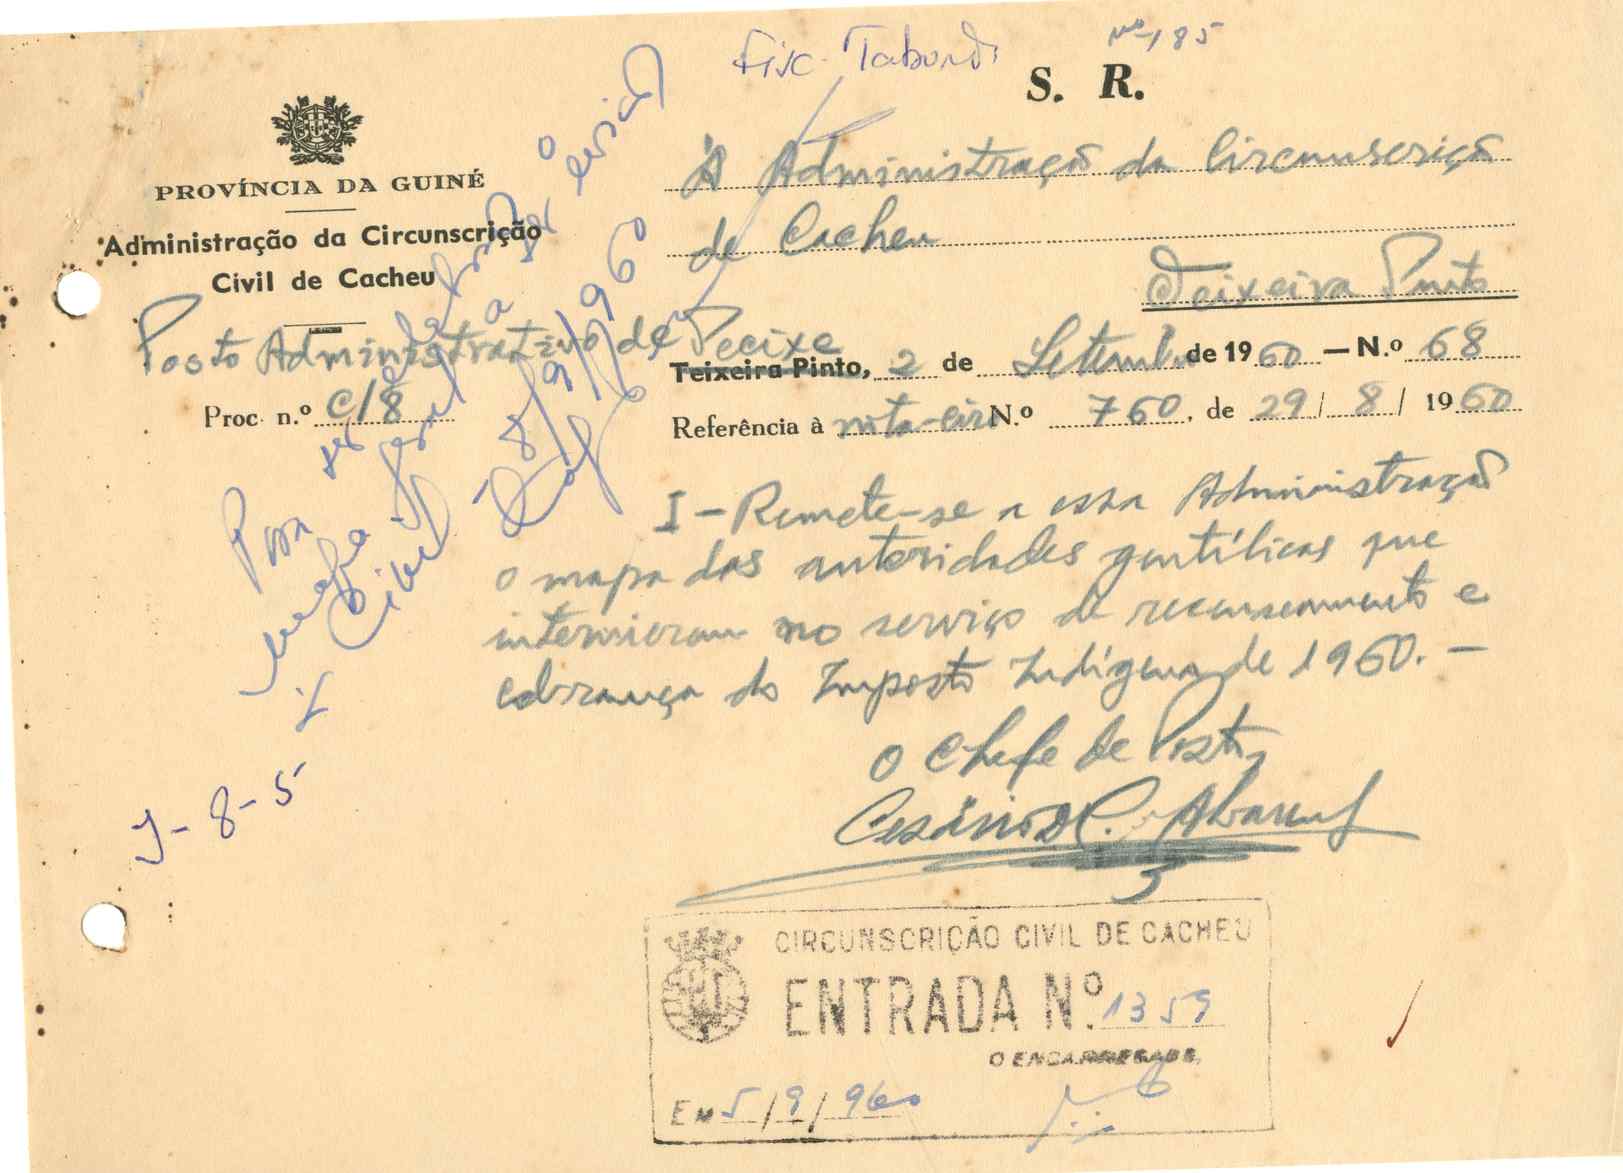 Nº 185
Fisc.
S. R.
PROVÍNCIA DA GUINÉ
Administração da Circunscrição
Civil de Cacheu
Posto Administrativo de Pecixe
Proc. n.º C/8
À Administração da Circunscrição
de Cacheu
Teixeira Pinto
Teixeira Pinto, 2 de Setembro de 1960 — N.º 68
Referência à nota-circ N.º 760, de 29 / 8 / 1960
I - Remete-se a essa Administração
o mapa das autoridades gentílicas que
intervieram no serviço de recenseamento e
cobrança do Imposto Indígena de 1960. —
O Chefe de Posto,
Para ser
a ser enviado
Civil
8/9/1960
J-8-5
CIRCUNSCRIÇÃO CIVIL DE CACHEU
ENTRADA N.º 1359
O ENCARREGADO,
EM 5 / 9 / 960